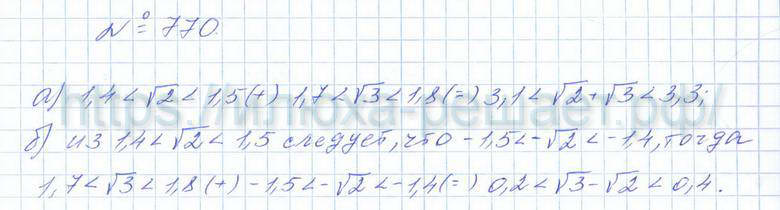 № 770.
а) 1,4 < √2 < 1,5 (+) 1,7 < √3 < 1,8 (=) 3,1 < √2 + √3 < 3,3;
https://илюха-решает.рф/
б) из 1,4 < √2 < 1,5 следует, что -1,5 < -√2 < -1,4, тогда
1,7 < √3 < 1,8 (+) -1,5 < -√2 < -1,4 (=) 0,2 < √3 - √2 < 0,4.